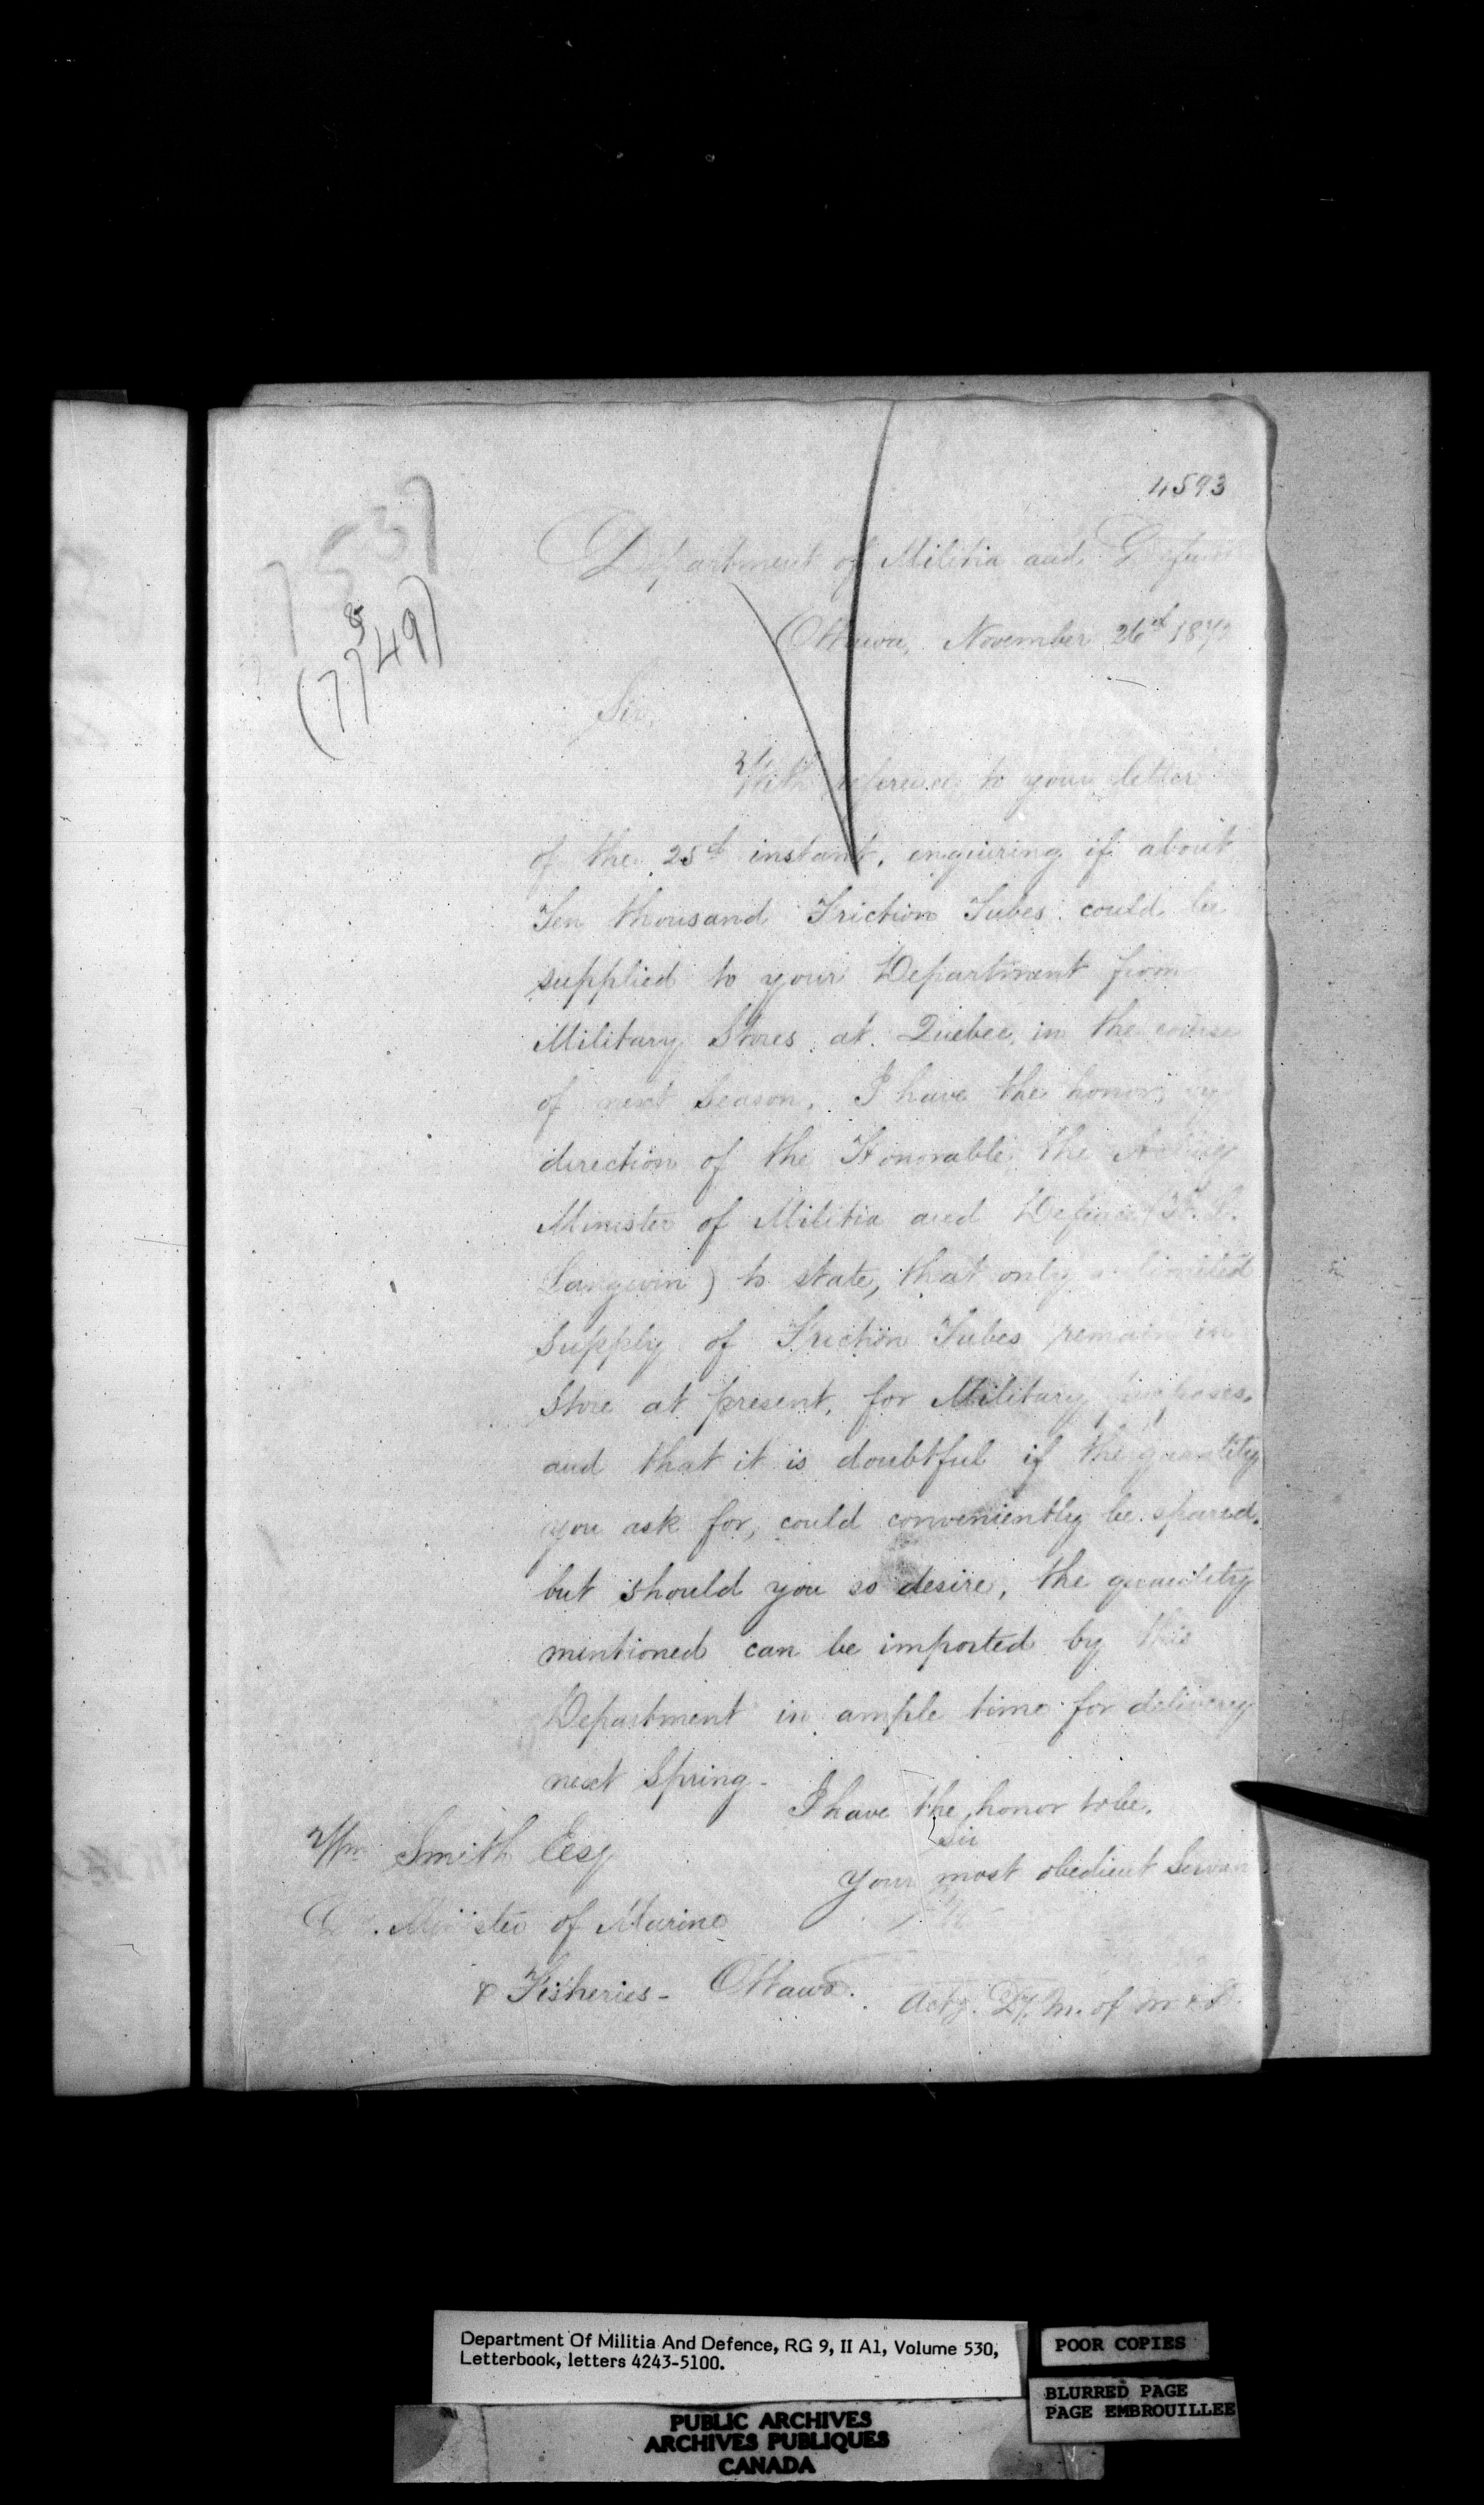 4593
7537
(77849)
Department of Militia and Defence
Ottawa, November 26th 1872
Sir,
With reference to your letter
of the 25th instant, enquiring if about
Ten thousand Friction Tubes could be
supplied to your Department from
Military Stores at Quebec, in the course
of next Season, I have the honor, by
direction of the Honorable the Acting
Minister of Militia and Defence (H. L.
Langevin) to state, that only a limited
Supply of Friction Tubes remain in
Store at present, for Military purposes,
and that it is doubtful if the quantity
you ask for, could conveniently be spared,
but should you so desire, the quantity
mentioned can be imported by this
Department in ample time for delivery
next Spring -
I have the honor to be,
Sir
Your most obedient Servan
Wm Smith Esq
Minister of Marine
& Fisheries - Ottawa.
Actg. Dy. M. of M & D.
Department Of Militia And Defence, RG 9, II A1, Volume 530,
Letterbook, letters 4243-5100.
POOR COPIES
BLURRED PAGE
PAGE EMBROUILLEE
PUBLIC ARCHIVES
ARCHIVES PUBLIQUES
CANADA